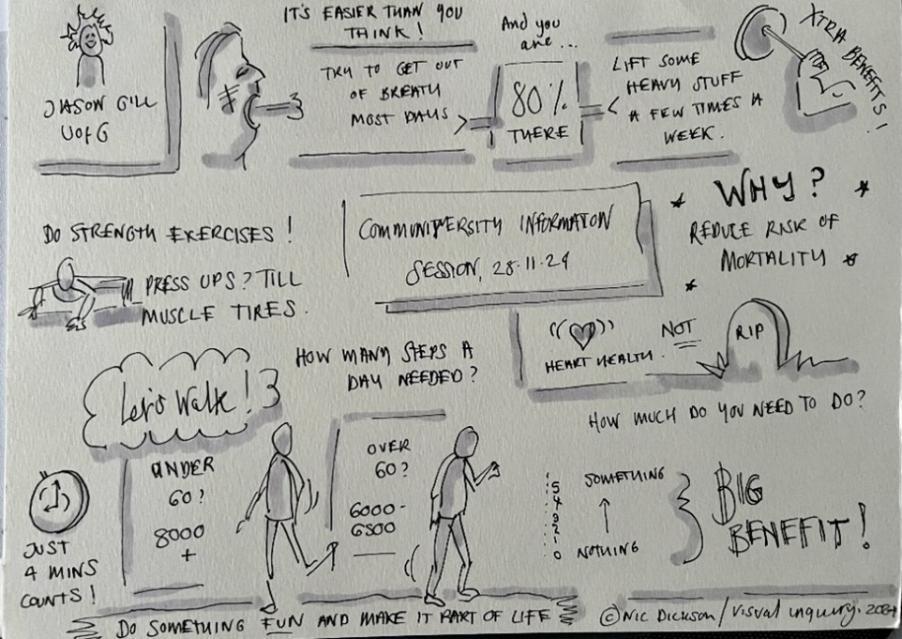 JASON GILL
UofG
IT'S EASIER THAN YOU
THINK!
TRY TO GET OUT
OF BREATH
MOST DAYS
And you
are...
80%
THERE
LIFT SOME
HEAVY STUFF
A FEW TIMES A
WEEK.
XTRA BENEFITS!
DO STRENGTH EXERCISES!
PRESS UPS? TILL
MUSCLE TIRES.
COMMUNIVERSITY INFORMATION
SESSION, 28.11.24
WHY?
REDUCE RISK OF
MORTALITY
HEART HEALTH. NOT
RIP
Let's Walk!
HOW MANY STEPS A
DAY NEEDED?
UNDER
60?
8000
+
OVER
60?
6000-
6500
JUST
4 MINS
COUNTS!
HOW MUCH DO YOU NEED TO DO?
5
4
3
2
1
0
SOMETHING
NOTHING
BIG
BENEFIT!
DO SOMETHING FUN AND MAKE IT PART OF LIFE
©Nic Dickson/Visual inquiry. 2024